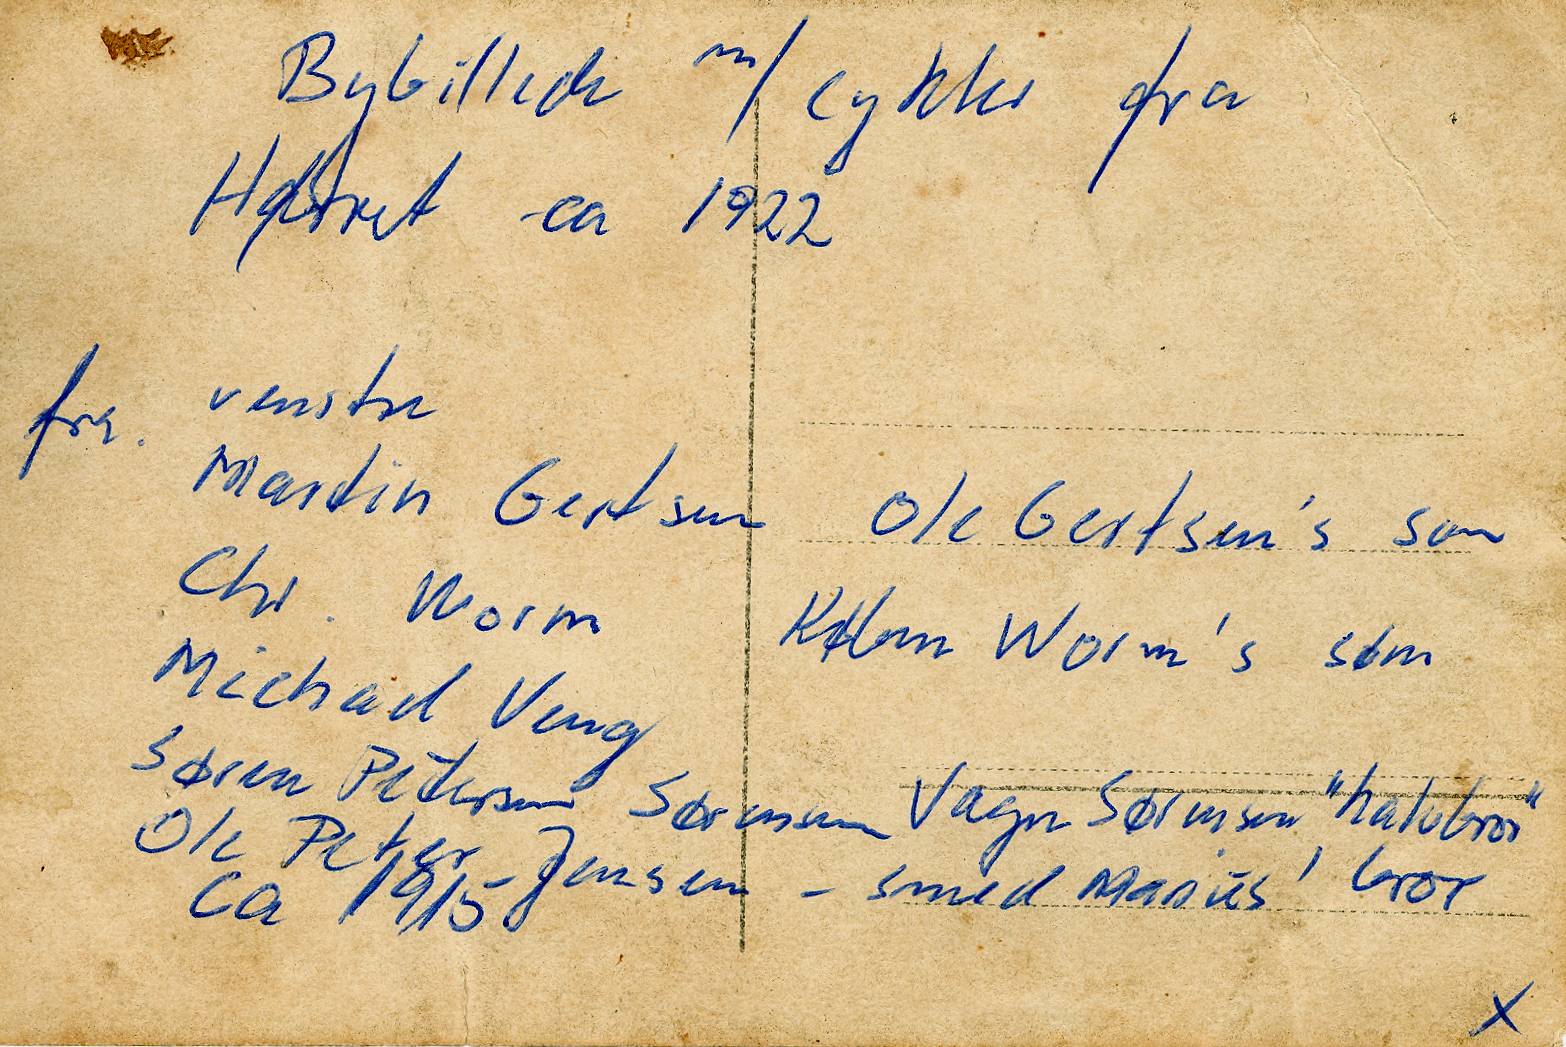 Bybillede m/ cykler fra
Hørret ca 1922
fra. venstre
Martin Gertsen Ole Gertsen's søn
Chr. Worm Worm's søn
Michael Veng
Søren Petersen Sørensen Vagn Sørensen "halvbror"
Ole Peter Jensen - smed Marius' bror
Ca 1915
X